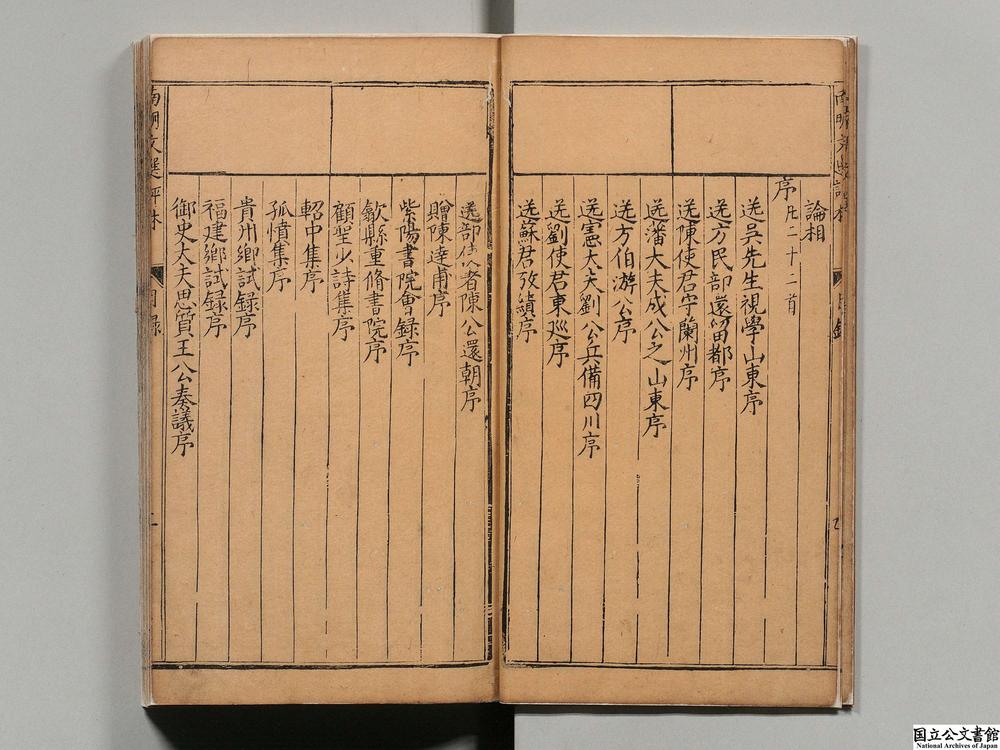 論相
序凡二十二首
送吳先生視學山東序
送方民部還留都序
送陳使君守蘭州序
送潘大夫成公之山東序
送方伯游公序
送憲大夫劉公兵備四川序
送劉使君東巡序
送蘇君攷績序
送部使者陳公還朝序
贈陳達甫序
紫陽書院會録序
歙縣重脩書院序
顧聖少詩集序
軺中集序
孤憤集序
貴州鄉試録序
福建鄉試録序
御史大夫思質王公奏議序
南明文選評林
目録
二
国立公文書館
National Archives of Japan